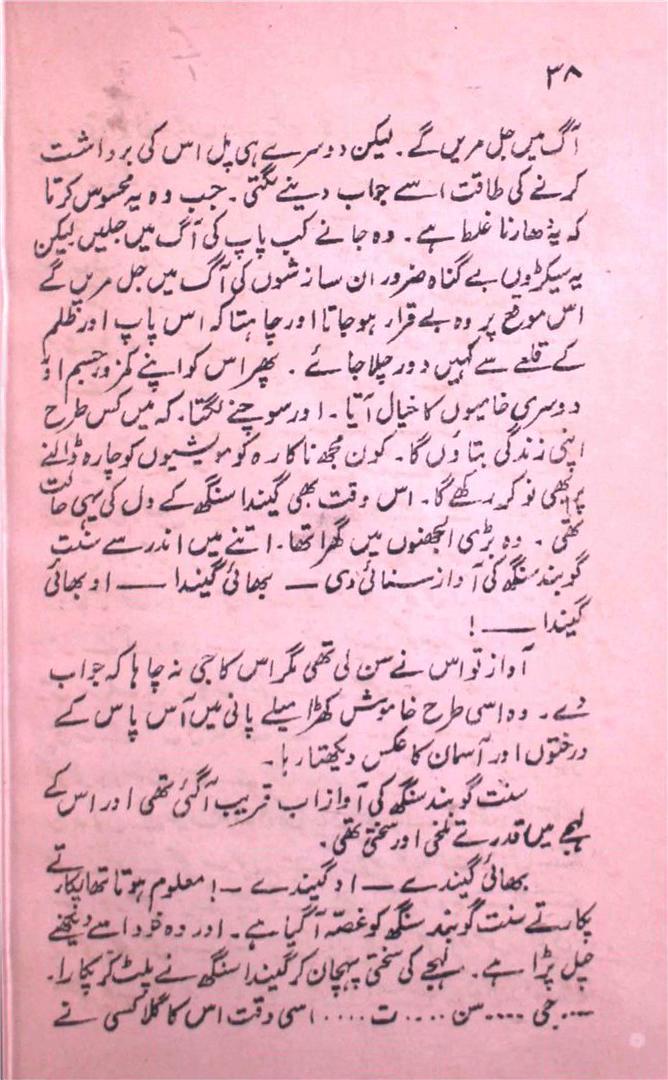 ۳۸
آگ میں جل مریں گے۔ لیکن دوسرے ہی پل اس کی برداشت
کرنے کی طاقت اسے جواب دینے لگتی۔ جب وہ یہ محسوس کرتا
کہ یہ دھارنا غلط ہے۔ وہ جانے کب پاپ کی آگ میں جلیں لیکن
یہ سیکڑوں بے گناہ ضرور ان سازشوں کی آگ میں جل مریں گے
اس موقع پر وہ بے قرار ہو جاتا اور چاہتا کہ اس پاپ اور ظلم
کے قلعے سے کہیں دور چلا جائے۔ پھر اس کو اپنے کمزور جسم اور
دوسری خامیوں کا خیال آتا۔ اور سوچنے لگتا۔ کہ میں کس طرح
اپنی زندگی بتاؤں گا۔ کون مجھ ناکارہ کو مویشیوں کو چارہ ڈالنے
پر بھی نوکر رکھے گا۔ اس وقت بھی گیندا سنگھ کے دل کی یہی حالت
تھی۔ وہ بڑی الجھنوں میں گھرا تھا۔ اتنے میں اندر سے سنت
گوبند سنگھ کی آواز سنائی دی — بھائی گیندا — او بھائی
گیندا —!
آواز تو اس نے سن لی تھی مگر اس کا جی نہ چاہا کہ جواب
دے۔ وہ اسی طرح خاموش کھڑا میلے پانی میں آس پاس کے
درختوں اور آسمان کا عکس دیکھتا رہا۔
سنت گوبند سنگھ کی آواز اب قریب آگئی تھی اور اس کے
لہجے میں قدرے تلخی اور سختی تھی۔
بھائی گیندے — او گیندے —! معلوم ہوتا تھا پکارتے
پکارتے سنت گوبند سنگھ کو غصّہ آگیا ہے۔ اور وہ خود اسے دیکھنے
چل پڑا ہے۔ لہجے کی سختی پہچان کر گیندا سنگھ نے پلٹ کر پکارا۔
.... جی .... سن .... ت .... اسی وقت اس کا گلا کسی نے